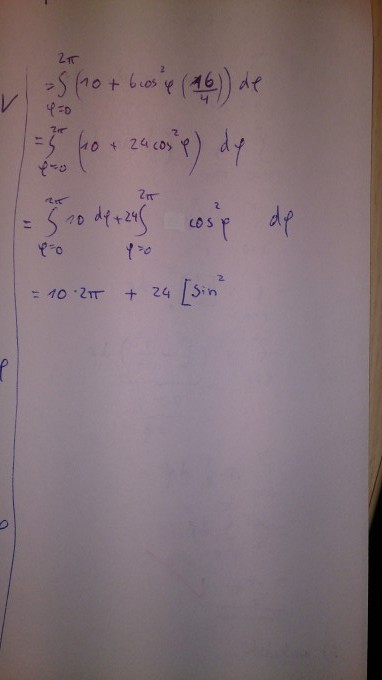 = ∫_{φ=0}^{2π} (10 + 6cos²φ (16/4)) dφ
= ∫_{φ=0}^{2π} (10 + 24cos²φ) dφ
= ∫_{φ=0}^{2π} 10 dφ + 24 ∫_{φ=0}^{2π} cos²φ dφ
= 10·2π + 24 [sin²